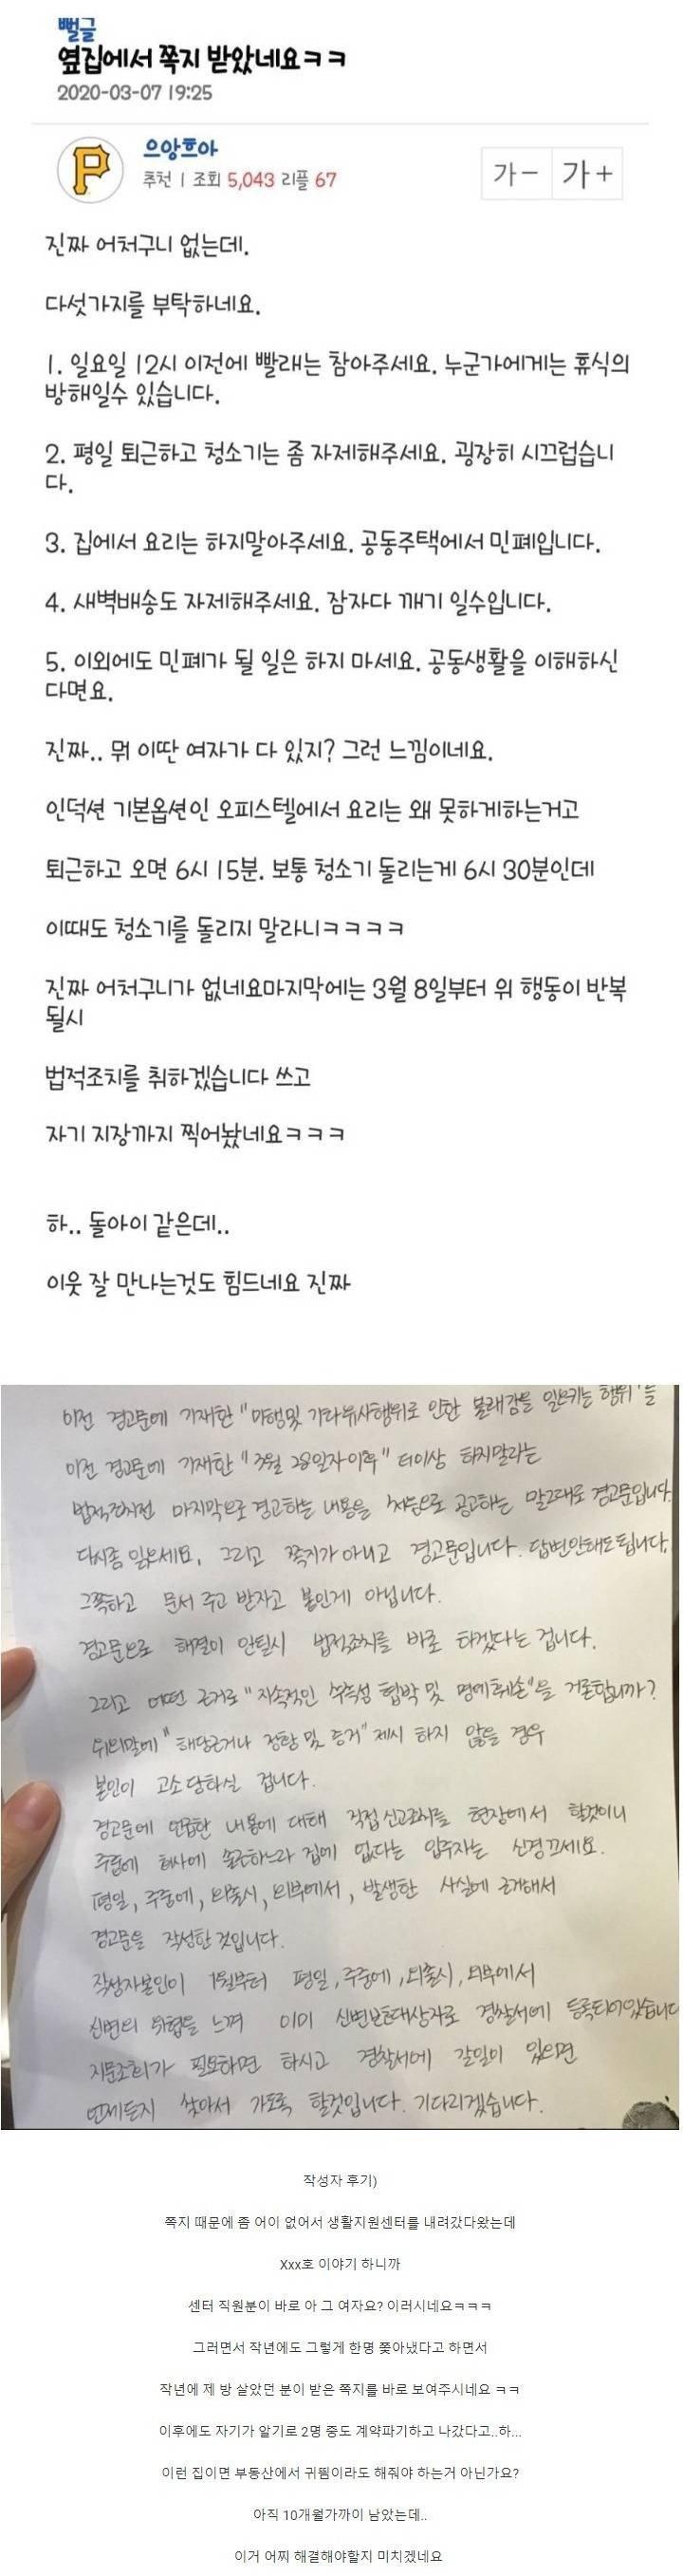 뻘글
옆집에서 쪽지 받았네요ㅋㅋ
2020-03-07 19:25
P
으앙흐아
추천 | 조회 5,043 리플 67
가- 가+
진짜 어처구니 없는데.
다섯가지를 부탁하네요.
1. 일요일 12시 이전에 빨래는 참아주세요. 누군가에게는 휴식의
방해일수 있습니다.
2. 평일 퇴근하고 청소기는 좀 자제해주세요. 굉장히 시끄럽습니
다.
3. 집에서 요리는 하지말아주세요. 공동주택에서 민폐입니다.
4. 새벽배송도 자제해주세요. 잠자다 깨기 일수입니다.
5. 이외에도 민폐가 될 일은 하지 마세요. 공동생활을 이해하신
다면요.
진짜.. 뭐 이딴 여자가 다 있지? 그런 느낌이네요.
인덕션 기본옵션인 오피스텔에서 요리는 왜 못하게하는거고
퇴근하고 오면 6시 15분. 보통 청소기 돌리는게 6시 30분인데
이때도 청소기를 돌리지 말라니ㅋㅋㅋㅋ
진짜 어처구니가 없네요마지막에는 3월 8일부터 위 행동이 반복
될시
법적조치를 취하겠습니다 쓰고
자기 지장까지 찍어놨네요ㅋㅋㅋ
하.. 돌아이 같은데..
이웃 잘 만나는것도 힘드네요 진짜
이전 경고문에 기재한 "미행및 기타유사행위로 인한 불쾌감을 일으키는 행위"를
이전 경고문에 기재한 "3월 28일자이후" 더이상 하지말라는
법적조치전 마지막으로 경고하는 내용을 처음으로 공고하는 말그대로 경고문입니다.
다시좀 읽으세요. 그리고 쪽지가 아니고 경고문입니다. 답변안해도됩니다.
그쪽하고 문서 주고 받자고 붙인게 아닙니다.
경고문으로 해결이 안될시 법적조치를 바로 하겠다는 겁니다.
그리고 어떤 근거로 "지속적인 협박 및 명예훼손"을 거론합니까?
위의말에 "해당근거나 정황 및 증거" 제시 하지 않을 경우
본인이 고소당하실 겁니다.
경고문에 언급한 내용에 대해 직접 신고조치를 현장에서 할것이니
주중에 회사에 출근하느라 집에 없다는 입주자는 신경끄세요.
평일, 주중에, 외출시, 외부에서, 발생한 사실에 근거해서
경고문을 작성한것입니다.
작성자본인이 1월부터 평일, 주중에, 외출시, 외부에서
신변의 위협을 느껴 이미 신변보호대상자로 경찰서에 등록되어있습니다
지문조회가 필요하면 하시고 경찰서에 갈일이 있으면
언제든지 찾아서 가도록 할것입니다. 기다리겠습니다.
작성자 후기)
쪽지 때문에 좀 어이 없어서 생활지원센터를 내려갔다왔는데
Xxx호 이야기 하니까
센터 직원분이 바로 아 그 여자요? 이러시네요ㅋㅋㅋ
그러면서 작년에도 그렇게 한명 쫓아냈다고 하면서
작년에 제 방 살았던 분이 받은 쪽지를 바로 보여주시네요 ㅋㅋ
이후에도 자기가 알기로 2명 중도 계약파기하고 나갔다고..하...
이런 집이면 부동산에서 귀뜸이라도 해줘야 하는거 아닌가요?
아직 10개월가까이 남았는데..
이거 어찌 해결해야할지 미치겠네요